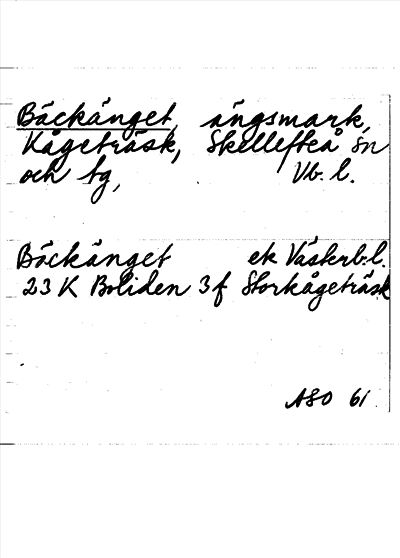 Bäckänget, ängsmark,
Kågeträsk, Skellefteå sn
och tg, Vb. l.
Bäckänget ek Västerb.l.
23 K Boliden 3f Storkågeträsk
ASO 61